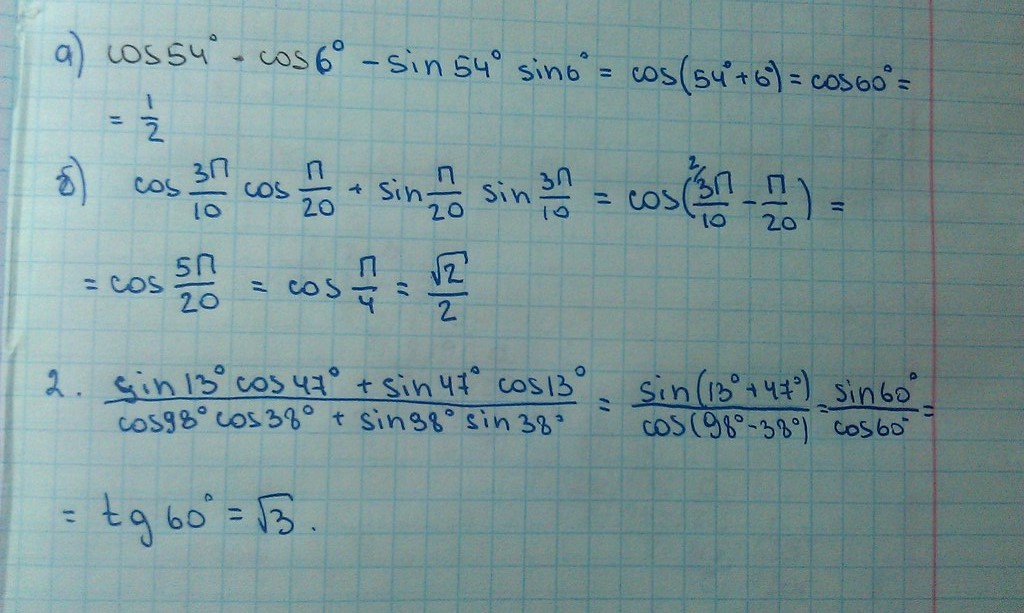 а) cos54° · cos6° − sin54° sin6° = cos(54°+6°) = cos60° =
= 1/2
б) cos 3П/10 cos П/20 + sin П/20 sin 3П/10 = cos(²⁄3П/10 − П/20) =
= cos 5П/20 = cos П/4 = √2/2
2. (sin13° cos47° + sin47° cos13°)/(cos98° cos38° + sin98° sin38°) = sin(13°+47°)/cos(98°−38°) = sin60°/cos60° =
= tg60° = √3.